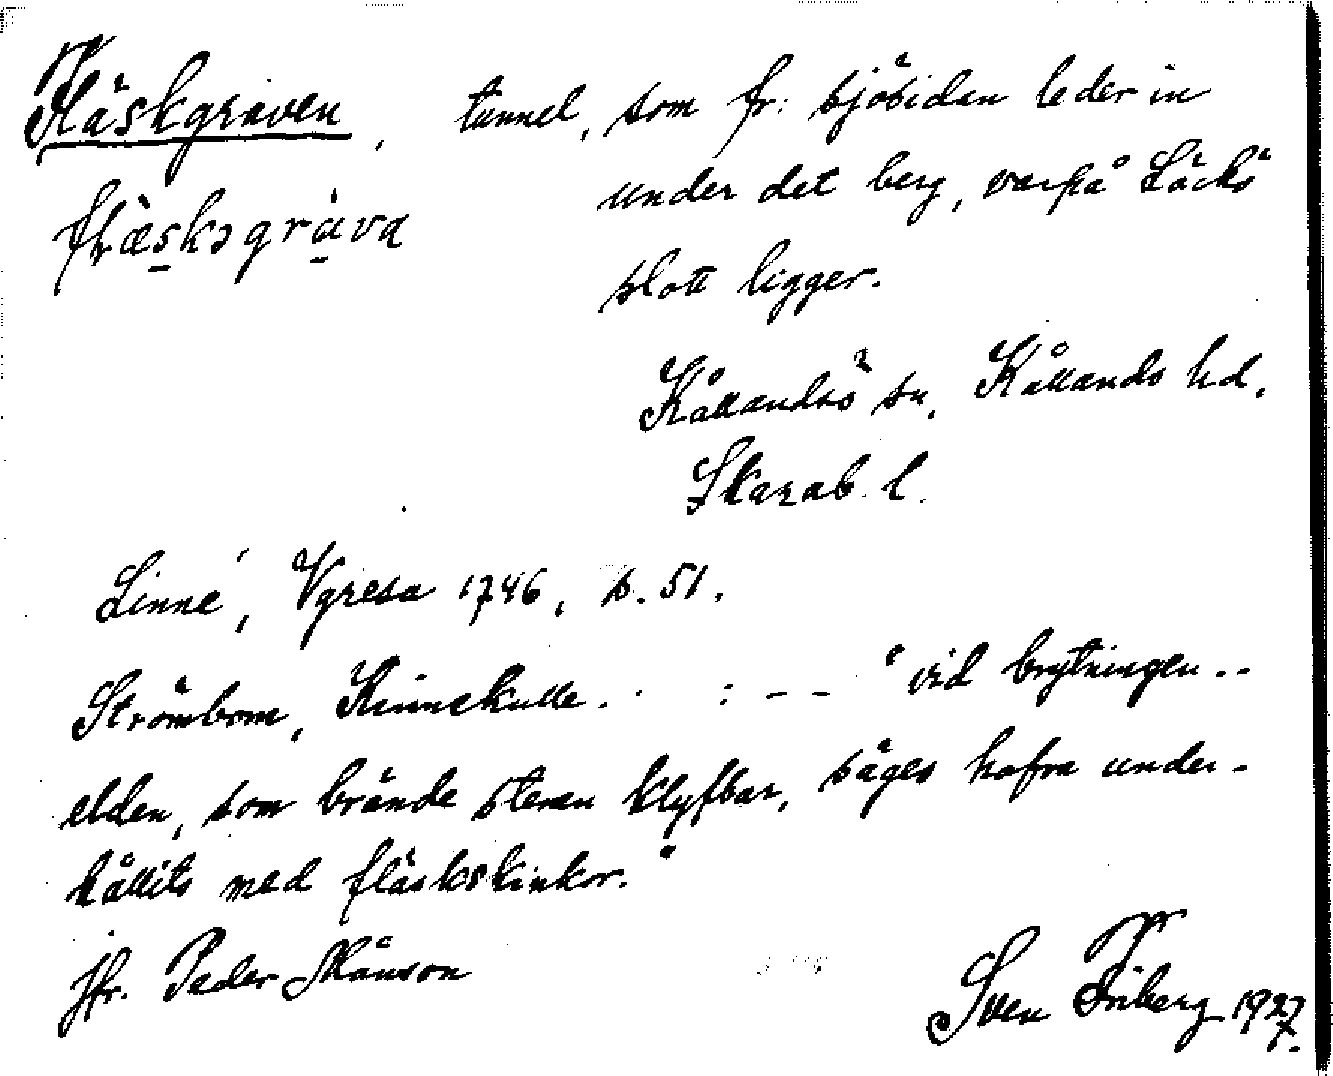 Fläskgraven, tunnel, som fr. sjösidan leder in
under det berg, varpå Läckö
fl̀æskɔgràva
slott ligger.
Kållandsö sn, Kållands hd,
Skarab. l.
Linné, Vgresa 1746, s. 51.
Strömbom, Kinnekulle. . : - - "vid brytningen..
elden, som brände stenen klyfbar, säges hafva under-
hållits med fläskskinkor."
Jfr. Peder Månson
Sven Friberg 1927.